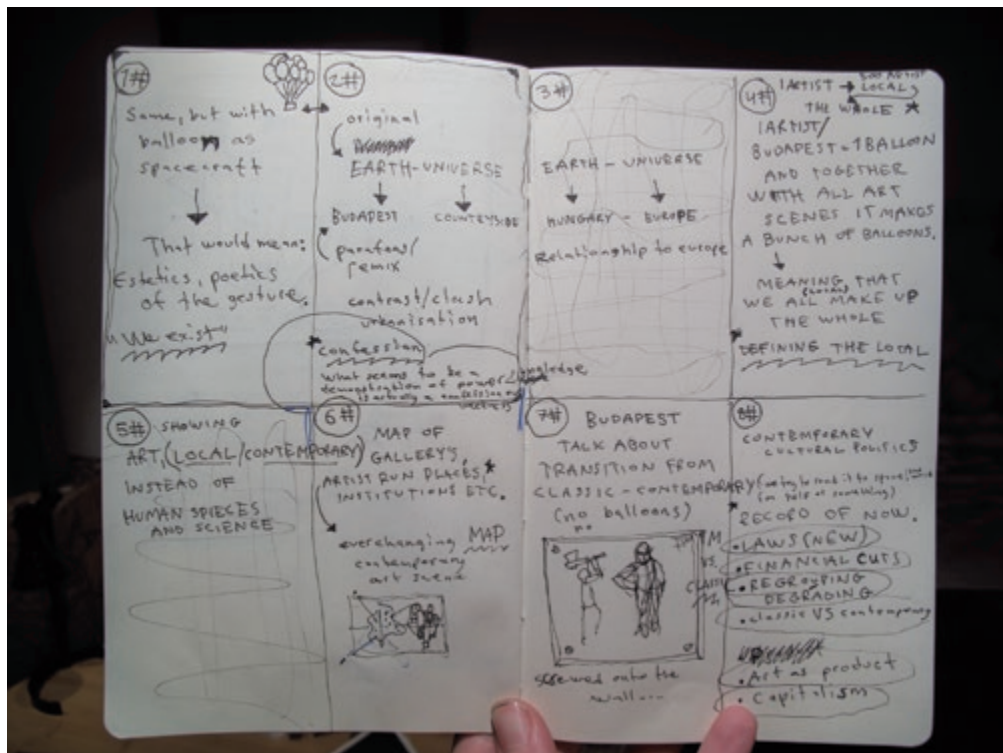 1#
Same, but with
balloon as
spacecraft
That would mean:
Estetics, poetics
of the gesture.
"We exist"
2#
original
EARTH-UNIVERSE
BUDAPEST COUNTRYSIDE
parafras/
remix
contrast/clash
urbanisation
confession
what seems to be a
demonstration of power/knowledge
is actually a confession of
3#
EARTH - UNIVERSE
HUNGARY - EUROPE
Relationship to europe
4#
1ARTIST → 500 ARTIST
LOCAL
THE WHOLE
1ARTIST/
BUDAPEST = 1 BALLOON
AND TOGETHER
WITH ALL ART
SCENES IT MAKES
A BUNCH OF BALLOONS.
MEANING THAT
(LOCAL)
WE ALL MAKE UP
THE WHOLE
DEFINING THE LOCAL
5# SHOWING
ART, (LOCAL/CONTEMPORARY)
INSTEAD OF
HUMAN SPIECES
AND SCIENCE
6#
MAP OF
GALLERYS,
ARTIST RUN PLACES,
INSTITUTIONS ETC.
everchanging MAP
contemporary
art scene
7# BUDAPEST
TALK ABOUT
TRANSITION FROM
CLASSIC - CONTEMPORARY
(no balloons)
no
VS.
screwed onto the
wall...
8#
CONTEMPORARY
CULTURAL POLITICS
RECORD OF NOW.
• LAWS (NEW)
• FINANCIAL CUTS
• REGROUPING
DEGRADING
• classic VS contemporary
• Art as product
• Capitalism